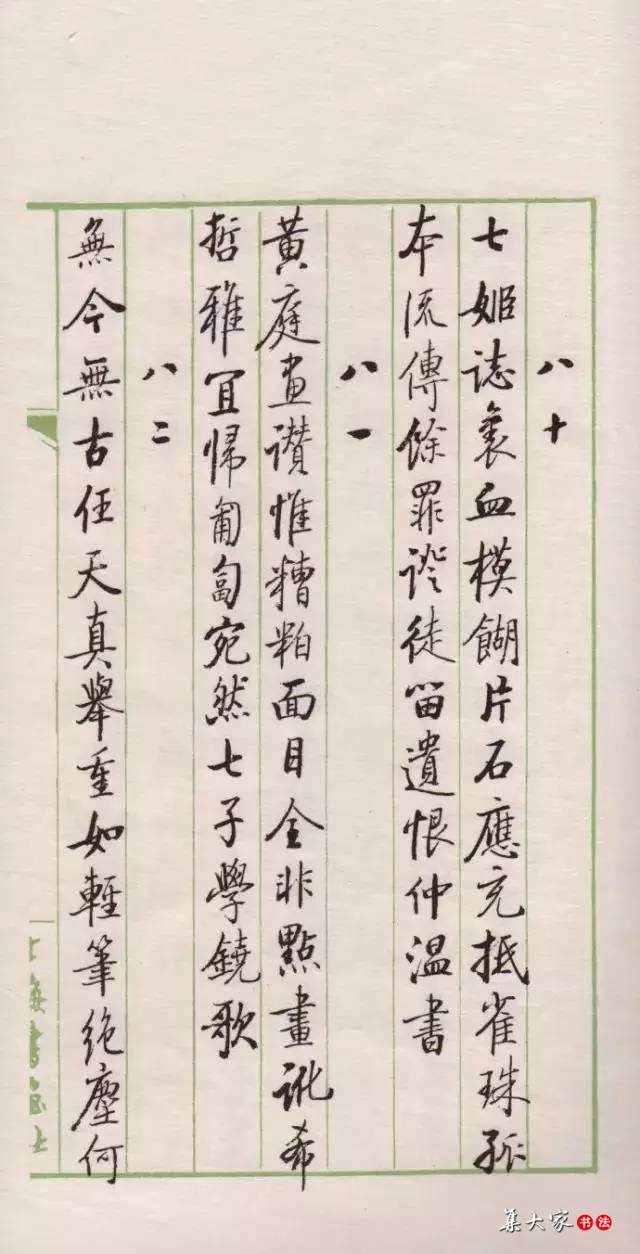 八十
七姬誌裏血模餬片石應充抵雀珠孤
本流傳餘罪證徒留遺恨仲溫書
八一
黃庭畫讚惟糟粕面目全非點畫訛希
哲雅宜歸匍匐宛然七子學鐃歌
八二
無今無古任天真舉重如輕筆絕塵何
上海書畫社
集大家书法